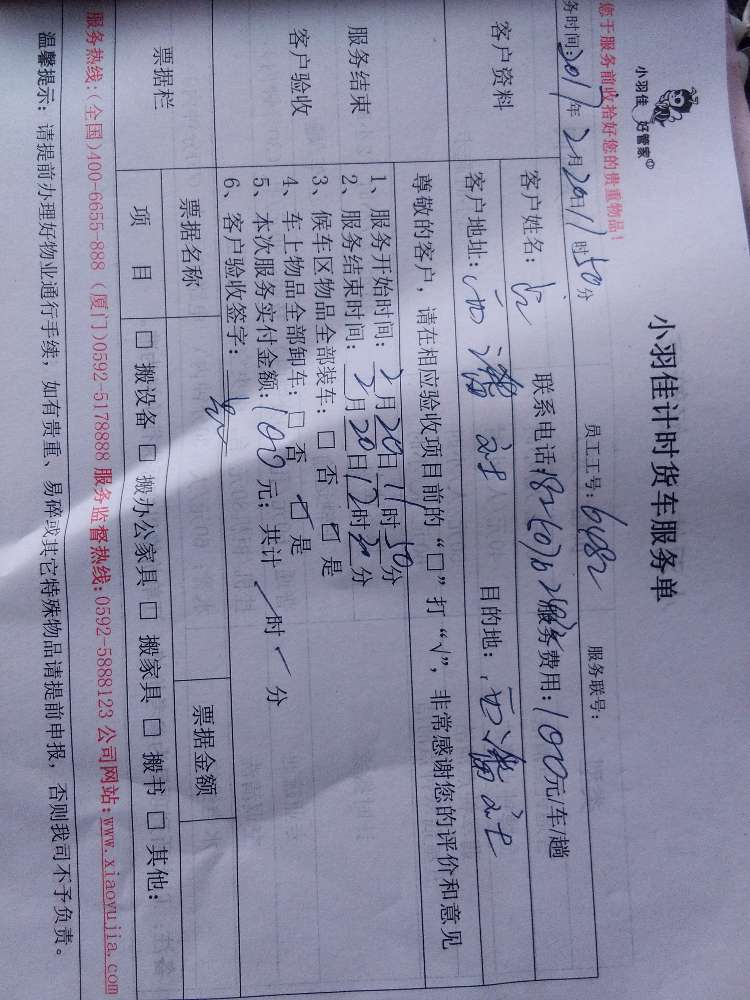 小羽佳 好管家
小羽佳计时货车服务单
您于服务前收拾好您的贵重物品!
务时间:2017年2月20日11时50分 员工工号:6482 服务联号:
客户资料
客户姓名: 联系电话: 服务费用:100元/车/趟
客户地址: 目的地:
服务结束
客户验收
尊敬的客户，请在相应验收项目前的“□”打“√”，非常感谢您的评价和意见
1、服务开始时间:2月20日11时50分
2、服务结束时间:2月20日12时 分
3、候车区物品全部装车:□ 否 □ 是
4、车上物品全部卸车:□ 否 □ 是
5、本次服务实付金额:100元；共计 时 分
6、客户验收签字:
票据栏 票据名称 票据金额
项 目 □ 搬设备 □ 搬办公家具 □ 搬家具 □ 搬书 □ 其他:
服务热线:(全国)400-6655-888 (厦门)0592-5178888 服务监督热线:0592-5888123 公司网站:www.xiaoyujia.com
温馨提示: 请提前办理好物业通行手续，如有贵重、易碎或其它特殊物品请提前申报，否则我司不予负责。